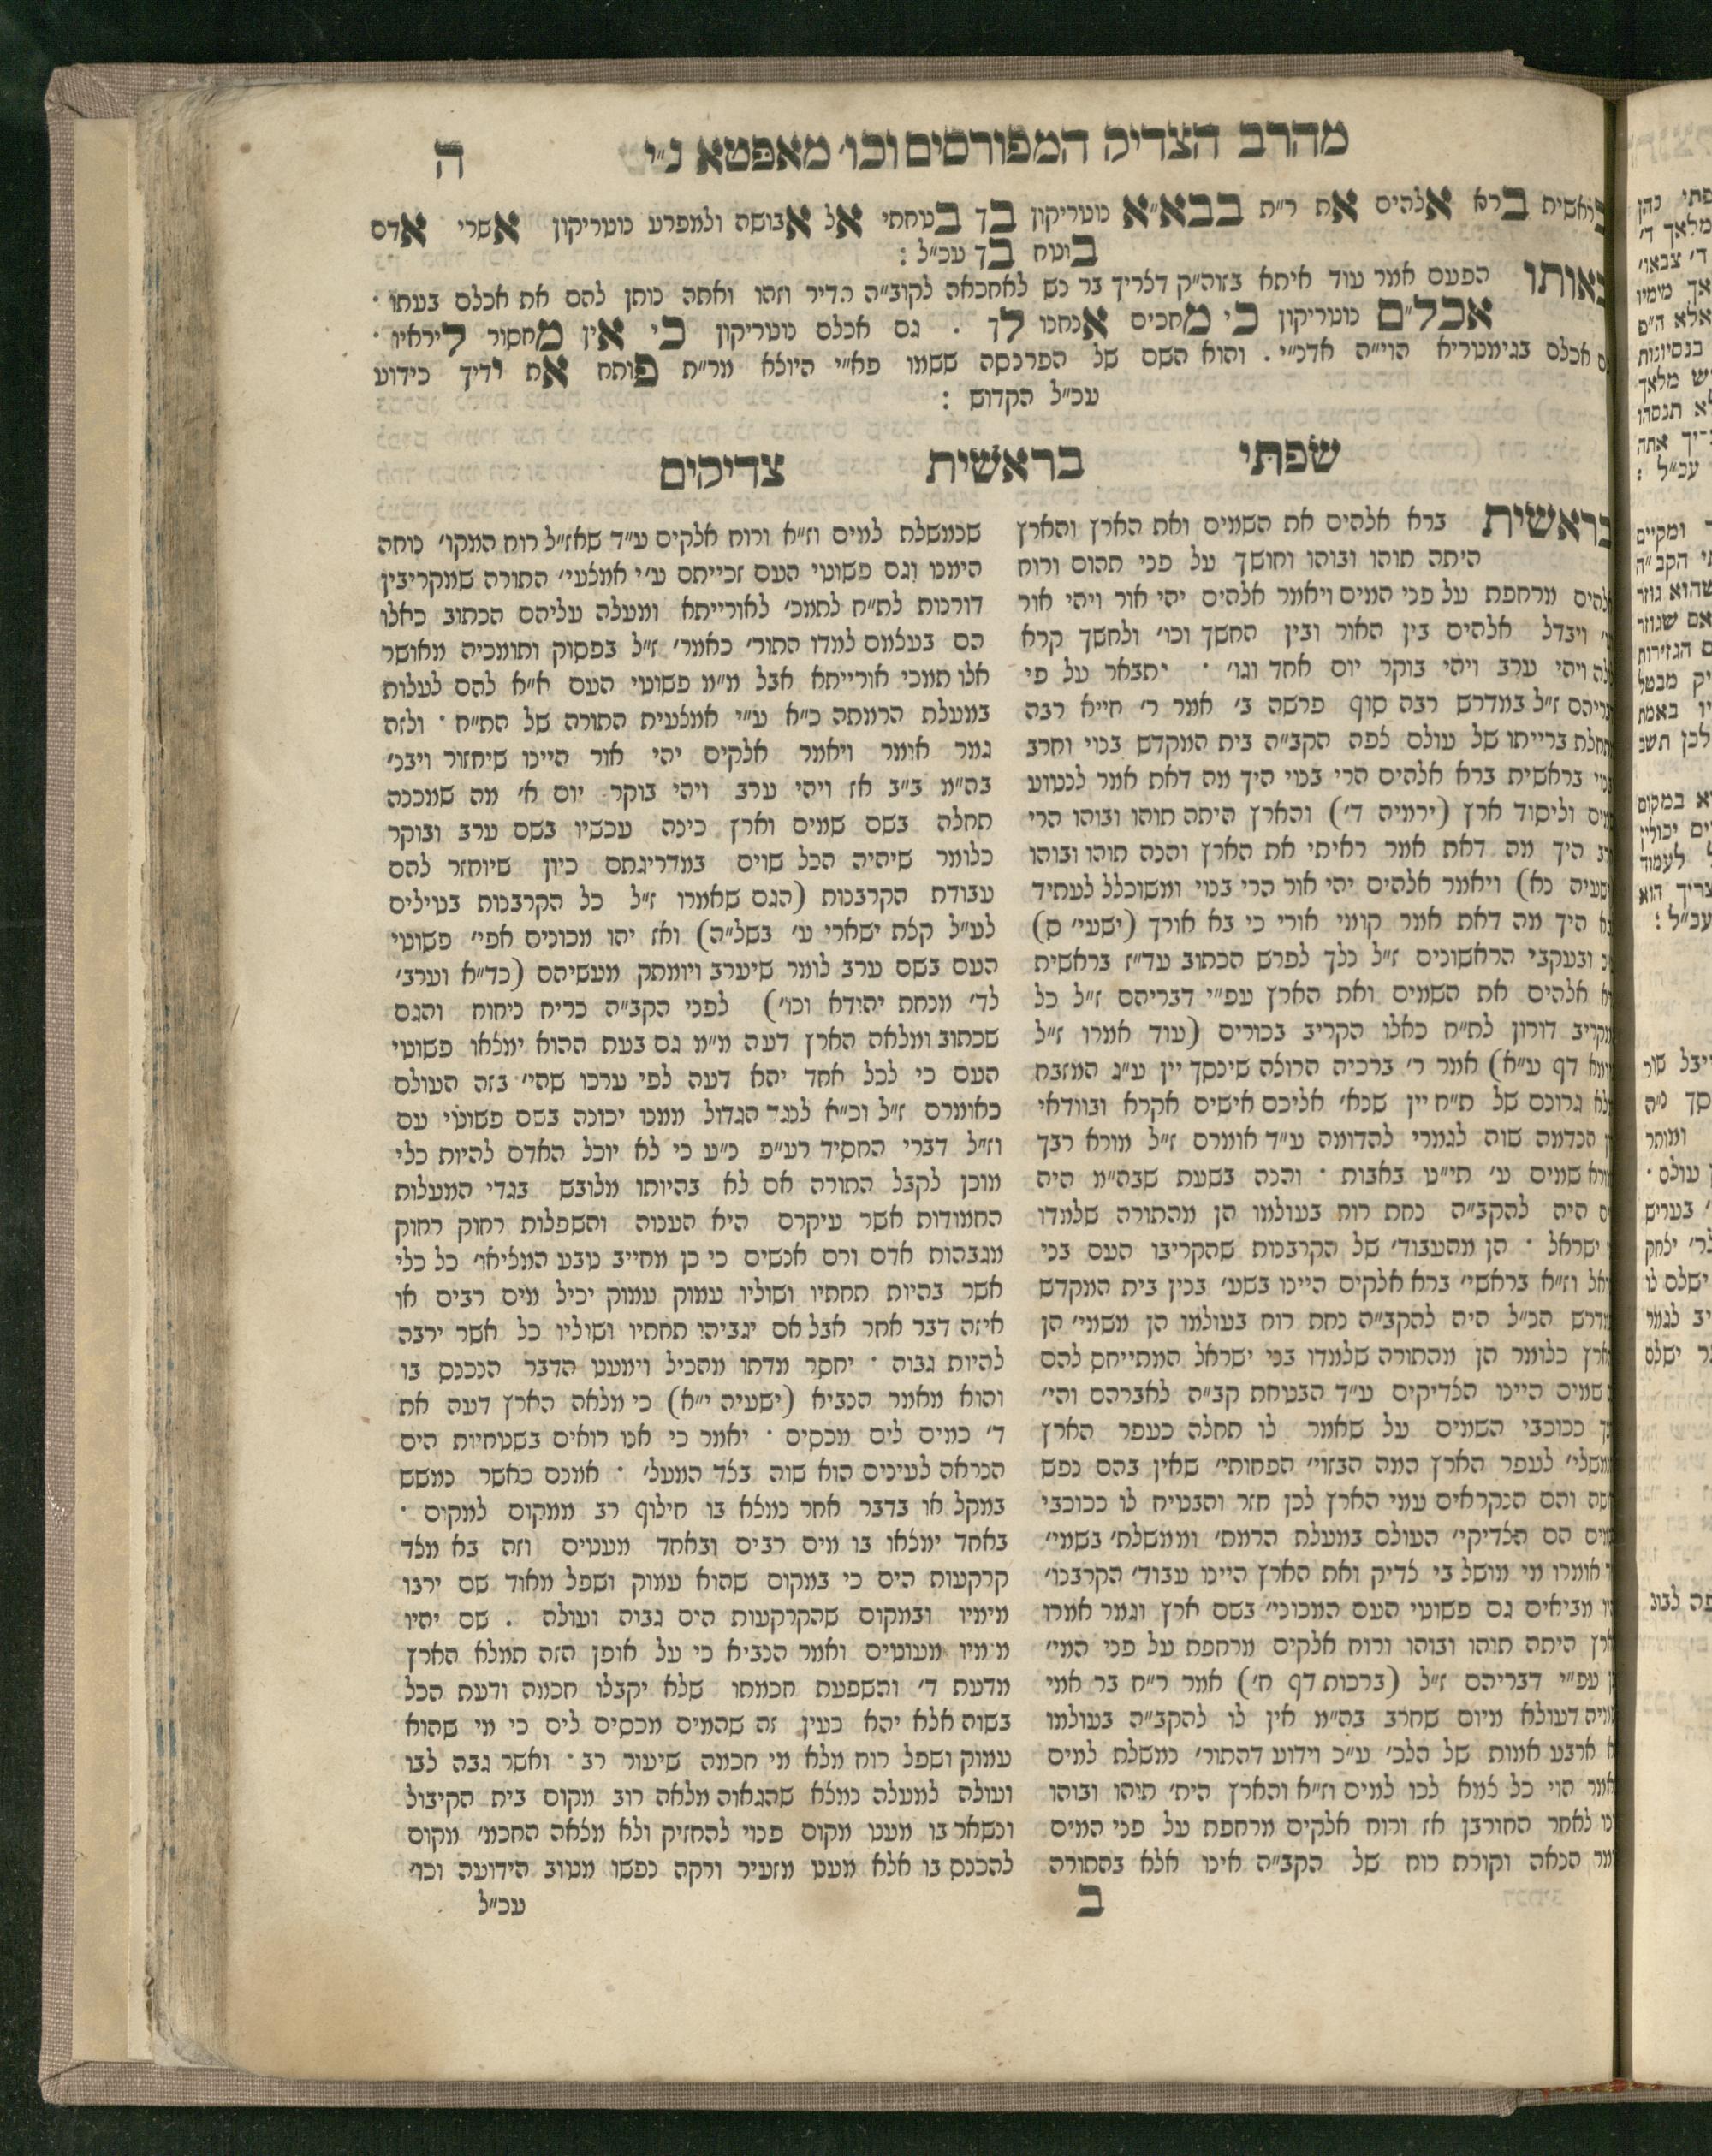 מהרב הצדיק המפורסים וכו׳ מאפטא נ״י
ה
בראשית ברא אלהים את ר״ת בבא״א נוטריקון בך בטחתי אל אבושה ולמפרע נוטריקון אשרי אדם
בוטח בך עכ״ל :
באותו הפעם אמר עוד איתא בזוה״ק דצריך בר נש לאחכאה לקוב״ה הדיר וזהו ואתה נותן להם את אכלם בעתו ׳
אכל״ם נוטריקון כי מחכים אנחנו לך . גם אכלם נוטריקון כי אין מחסור ליראיו ׳
אכלם בגימטריא הוי״ה אדנ״י . והוא השם של הפרנסה ששמו פא״י היוצא מר״ת פותח את ידיך כידוע
עכ״ל הקדוש :
שפתי בראשית צדיקים
בראשית ברא אלהים את השמים ואת הארץ והארץ
היתה תוהו ובוהו וחושך על פני תהום ורוח
מרחפת על פני המים ויאמר אלהים יהי אור ויהי אור
ויבדל אלהים בין האור ובין החשך וכו׳ ולחשך קרא
ויהי ערב ויהי בוקר יום אחד וגו׳ ׳ יתבאר על פי
ז״ל במדרש רבה סוף פרשה ב׳ אמר ר׳ חייא רבה
ברייתו של עולם צפה הקב״ה בית המקדש בנוי וחרב
בראשית ברא אלהים הרי בנוי היך מה דאת אמר לנטוע
וליסוד ארץ (ירמיה ד׳) והארץ היתה תוהו ובוהו הרי
היך מה דאת אמר ראיתי את הארץ והנה תוהו ובוהו
נא) ויאמר אלהים יהי אור הרי בנוי ומשוכלל לעתיד
היך מה דאת אמר קומי אורי כי בא אורך (ישעי׳ ס)
ובעקבי הראשונים ז״ל נלך לפרש הכתוב עד״ז בראשית
אלהים את השמים ואת הארץ עפ״י דבריהם ז״ל כל
דורון לת״ח כאלו הקריב בכורים (עוד אמרו ז״ל
דף ע״א) אמר ר׳ ברכיה הרוצה שינסך יין ע״ג המזבח
גרונם של ת״ח יין שנא׳ אליכם אישים אקרא ובוודאי
הנדמה שוה לגמרי להדומה ע״ד אומרם ז״ל מורא רבך
שמים ע׳ תי״ט באבות ׳ והנה בשעת שבה״מ היה
היה להקב״ה נחת רוח בעולמו הן מהתורה שלמדו
ישראל ׳ הן מהעבוד׳ של הקרבנות שהקריבו העם בני
וז״א בראשי׳ ברא אלקים היינו בשע׳ בנין בית המקדש
הנ״ל היה להקב״ה נחת רוח בעולמו הן משמי׳ הן
כלומר הן מהתורה שלמדו בני ישראל המתייחס להם
שמים היינו הצדיקים ע״ד הבטחת קב״ה לאברהם והי׳
ככוכבי השמים על שאמר לו תחלה כעפר הארץ
לעפר הארץ המה הבזוי׳ הפחותי׳ שאין בהם נפש
והם הנקראים עמי הארץ לכן חזר והבטיח לו ככוכבי
הם הצדיקי׳ העולם במעלת הרמת׳ וממשלת׳ בשמי׳
אומרו מי מושל בי צדיק ואת הארץ היינו עבוד׳ הקרבנו׳
מביאים גם פשוטי העם המכוני׳ בשם ארץ וגמר אמרו
היתה תוהו ובוהו ורוח אלקים מרחפת על פני המי׳
עפ״י דבריהם ז״ל (ברכות דף ח׳) אמר ר״ח בר אמי
דעולא מיום שחרב בה״מ אין לו להקב״ה בעולמו
ארבע אמות של הלכ׳ ע״כ וידוע דהתור׳ נמשלת למים
הוי כל צמא לכו למים וז״א והארץ הית׳ תוהו ובוהו
לאחר החורבן אז ורוח אלקים מרחפת על פני המים
הנאה וקורת רוח של הקב״ה אינו אלא בהתורה
ב
שנמשלת למים וז״א ורוח אלקים ע״ד שאז״ל רוח המקו׳ נוחה
הימנו וגם פשוטי העם זכייתם ע״י אמצעי׳ התורה שמקריבין
דורנות לת״ח לתמכ׳ לאורייתא ומעלה עליהם הכתוב כאלו
הם בעצמם למדו התור׳ כאמר׳ ז״ל בפסוק ותומכיה מאושר
אלו תמכי אורייתא אבל מ״מ פשוטי העם א״א להם לעלות
במעלת הרמתה כ״א ע״י אמצעית התורה של הת״ח ׳ ולזה
גמר אומר ויאמר אלקים יהי אור היינו שיחזור ויבנ׳
בה״מ ב״ב אז ויהי ערב ויהי בוקר יום א׳ מה שמכנה
תחלה בשם שמים וארץ כינה עכשיו בשם ערב ובוקר
כלומר שיהיה הכל שוים במדריגתם כיון שיוחזר להם
עבודת הקרבנות (הגם שאמרו ז״ל כל הקרבנות בטילים
לע״ל קצת ישארי ע׳ בשל״ה) ואז יהו מכונים אפי׳ פשוטי
העם בשם ערב לומר שיערב ויומתק מעשיהם (כד״א וערב׳
לד׳ מנחת יהודא וכו׳) לפני הקב״ה כריח ניחוח והגם
שכתוב ומלאה הארץ דעה מ״מ גם בעת ההוא ימצאו פשוטי
העם כי לכל אחד יהא דעה לפי ערכו שהי׳ בזה העולם
כאומרם ז״ל וכ״א לנגד הגדול ממנו יכונה בשם פשוטי עם
וז״ל דברי החסיד רע״פ נ״ע כי לא יוכל האדם להיות כלי
מוכן לקבל התורה אם לא בהיותו מלובש בגדי המעלות
החמודות אשר עיקרם היא הענוה והשפלות רחוק רחוק
מגבהות אדם ורם אנשים כי כן מחייב טבע המציאו׳ כל כלי
אשר בהיות תחתיו ושוליו עמוק עמוק יכיל מים רבים או
איזה דבר אחר אבל אם יגביהו תחתיו ושוליו כל אשר ירבה
להיות גבוה ׳ יחסר מדתו מהכיל וימעט הדבר הנכנס בו
והוא מאמר הנביא (ישעיה י״א) כי מלאה הארץ דעה את
ד׳ כמים לים מכסים ׳ יאמר כי אנו רואים בשטחיות הים
הנראה לעינים הוא שוה בצד המעל׳ ׳ אמנם כאשר נמשש
במקל או בדבר אחר נמצא בו חילוף רב ממקום למקום ׳
באחד ימצאו בו מים רבים ובאחד מעטים וזה בא מצד
קרקעות הים כי במקום שהוא עמוק ושפל מאוד שם ירבו
מימיו ובמקום שהקרקעות הים גבוה ועולה . שם יהיו
מימיו מעוטים ואמר הנביא כי על אופן הזה תמלא הארץ
מדעת ד׳ והשפעת חכמתו שלא יקבלו חכמה ודעת הכל
בשוה אלא יהא כעין זה שהמים מכסים לים כי מי שהוא
עמוק ושפל רוח מלא מי חכמה שיעור רב ׳ ואשר גבה לבו
ועולה למעלה נמצא שהגאוה מלאה רוב מקום בית הקיבול
ונשאר בו מעט מקום פנוי להחזיק ולא מצאה החכמ׳ מקום
להכנס בו אלא מעט מזעיר ורקה נפשו מטוב הידועה וכו׳
עכ״ל